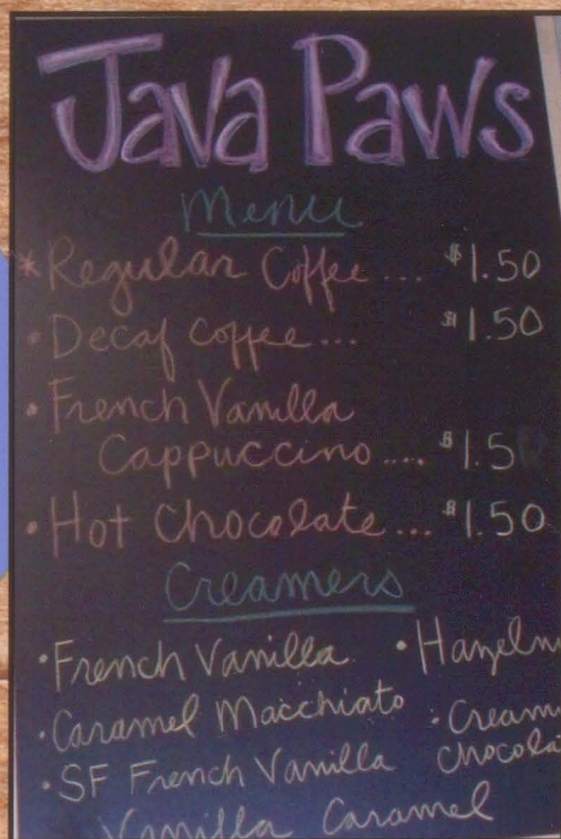 Java Paws
Menu
* Regular Coffee... $1.50
• Decaf coffee... $1.50
• French Vanilla
Cappuccino.... $1.5
• Hot Chocolate... $1.50
Creamers
• French Vanilla
• Caramel Macchiato • Cream
• SF French Vanilla
Vanilla Caramel